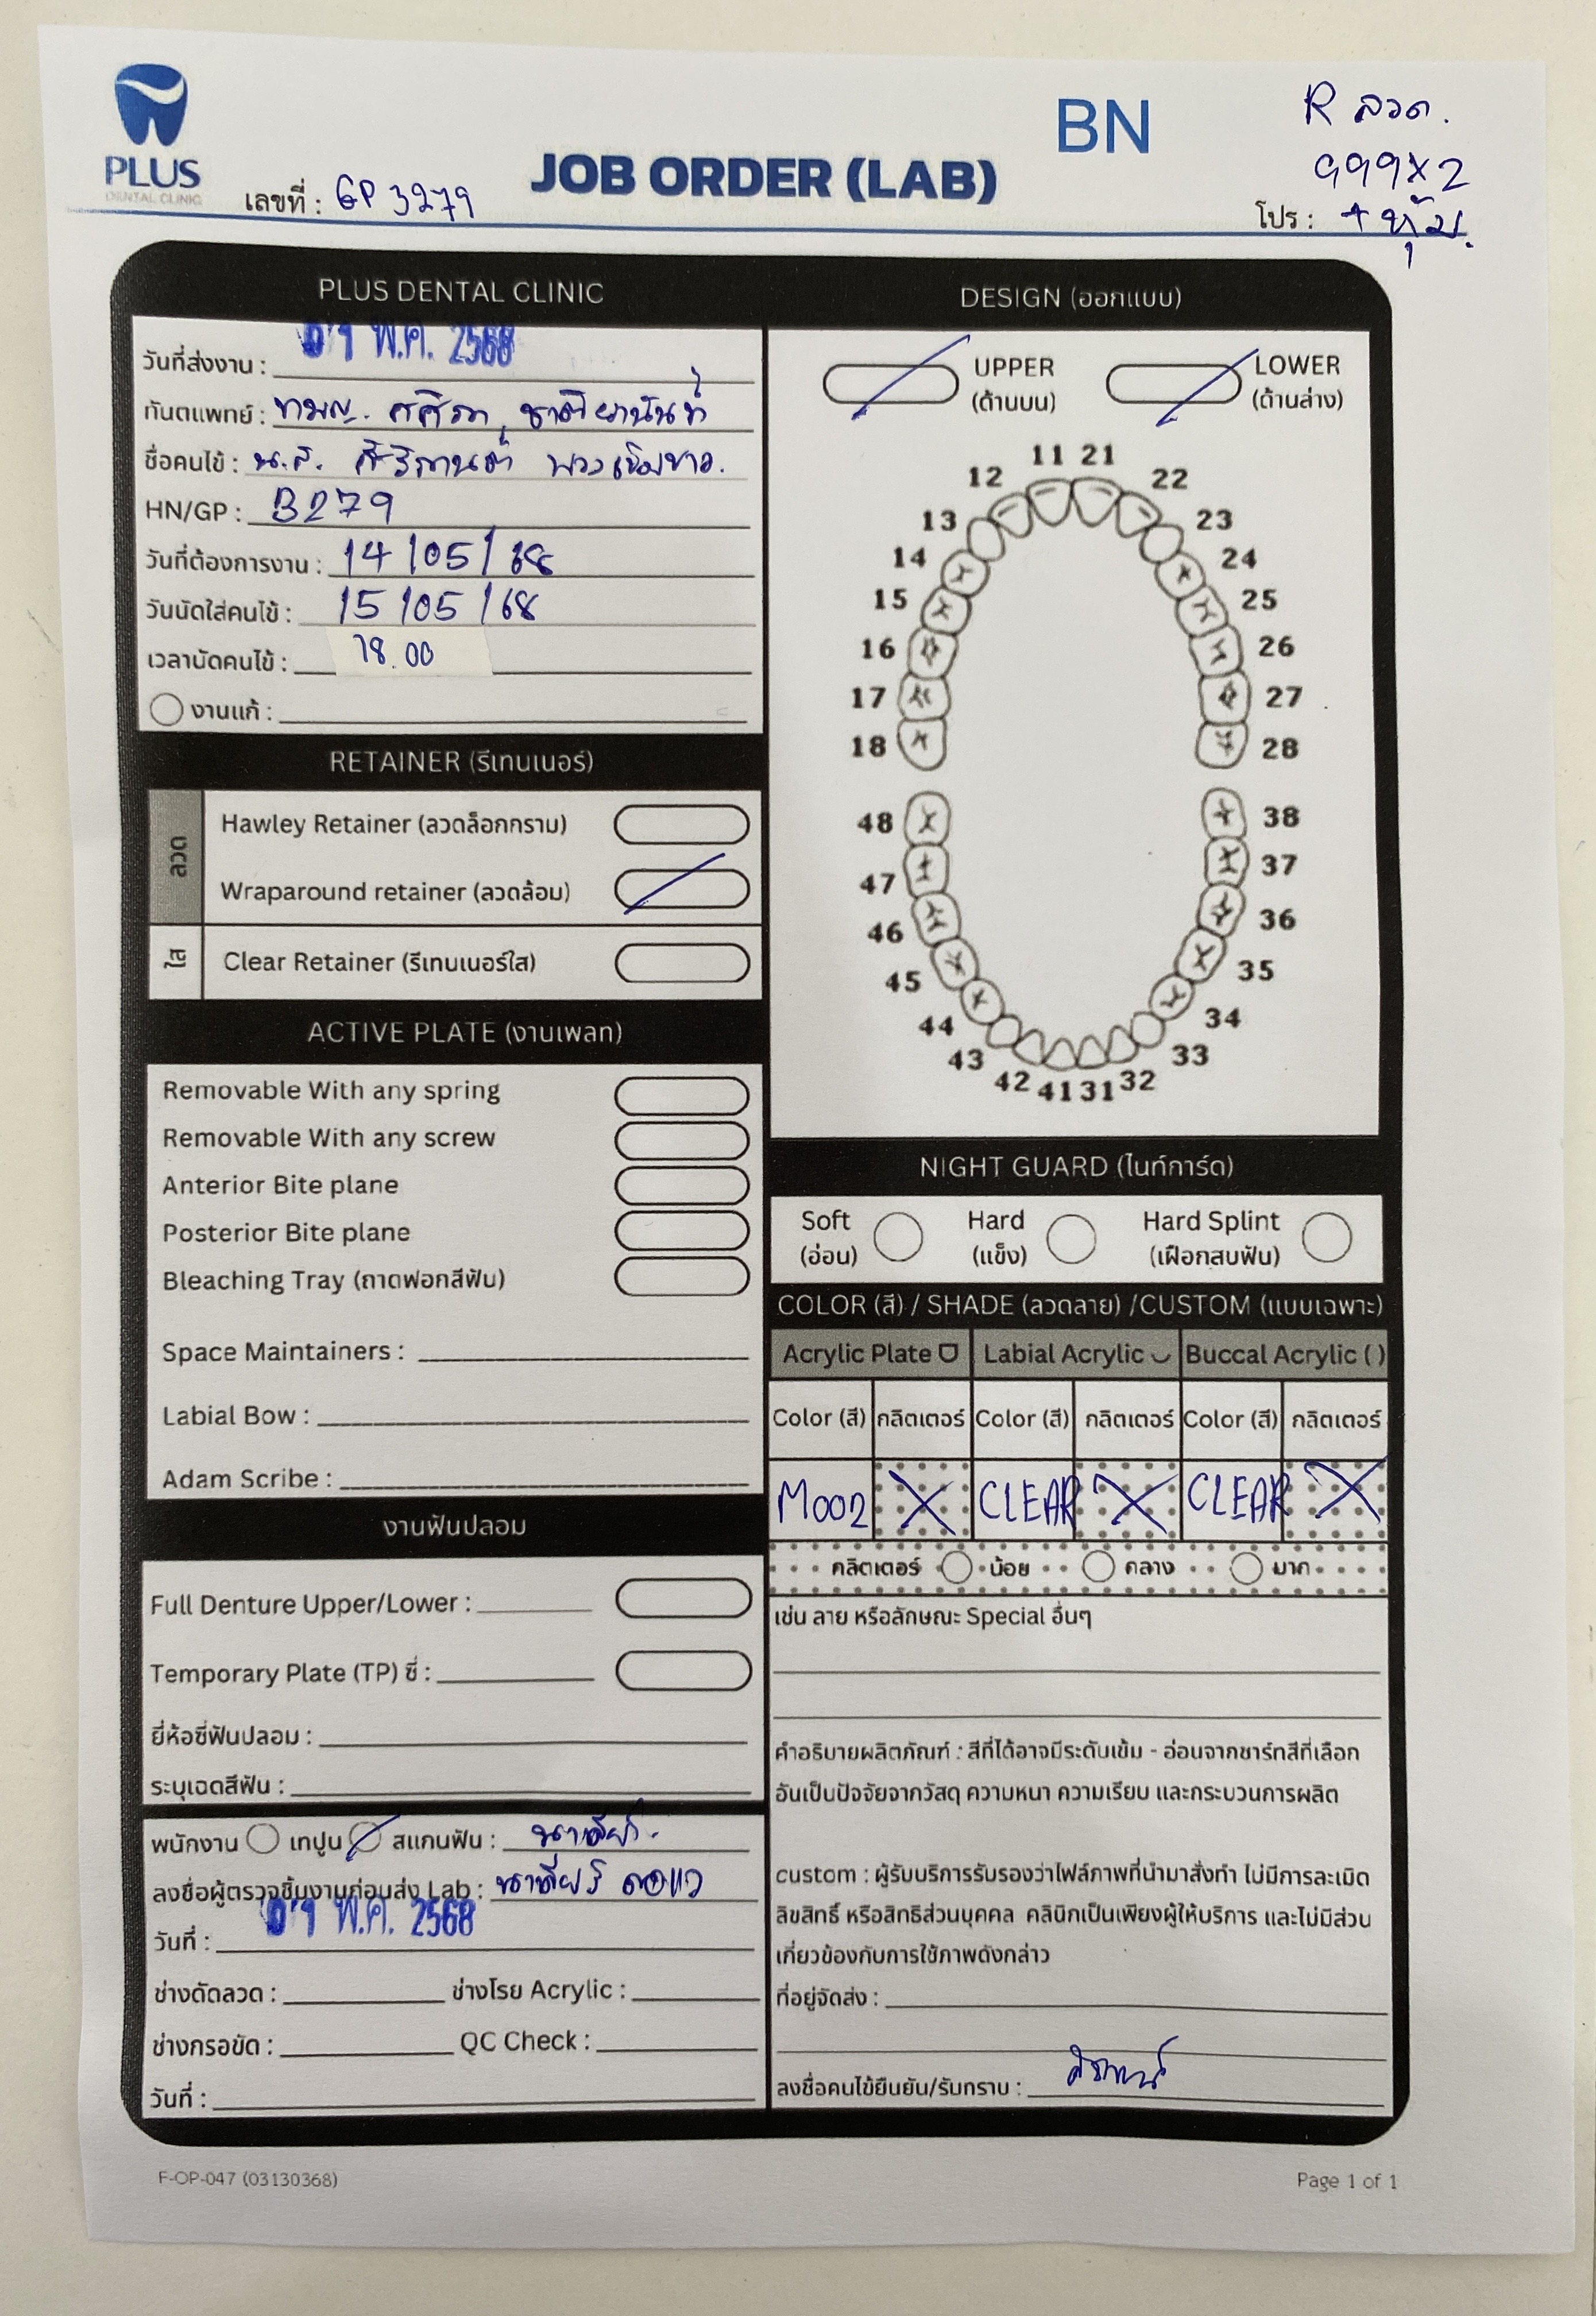 PLUS
DENTAL CLINIC
เลขที่ : GP 3279
JOB ORDER (LAB)
BN
R ลวด.
999x2
โปร : + หุ้ม.
PLUS DENTAL CLINIC
วันที่ส่งงาน : 01 พ.ค. 2568
ทันตแพทย์ : ทพญ. ศศิภา
ชื่อคนไข้ : น.ส.
HN/GP : 3279
วันที่ต้องการงาน : 14/05/68
วันนัดใส่คนไข้ : 15/05/68
เวลานัดคนไข้ : 18.00
งานแก้ :
RETAINER (รีเทนเนอร์)
ลวด
Hawley Retainer (ลวดล็อกกราม)
Wraparound retainer (ลวดล้อม)
ใส
Clear Retainer (รีเทนเนอร์ใส)
ACTIVE PLATE (งานเพลท)
Removable With any spring
Removable With any screw
Anterior Bite plane
Posterior Bite plane
Bleaching Tray (ถาดฟอกสีฟัน)
Space Maintainers :
Labial Bow :
Adam Scribe :
งานฟันปลอม
Full Denture Upper/Lower :
Temporary Plate (TP) ซี่ :
ยี่ห้อซี่ฟันปลอม :
ระบุเฉดสีฟัน :
พนักงาน เทปูน สแกนฟัน : นาเดียร์
ลงชื่อผู้ตรวจชิ้นงานก่อนส่ง Lab : นาเดียร์
วันที่ : 01 พ.ค. 2568
ช่างดัดลวด : ช่างโรย Acrylic :
ช่างกรอขัด : QC Check :
วันที่ :
DESIGN (ออกแบบ)
UPPER (ด้านบน)
LOWER (ด้านล่าง)
11 21
12 22
13 23
14 24
15 25
16 26
17 27
18 28
48 38
47 37
46 36
45 35
44 34
43 33
42 41 31 32
NIGHT GUARD (ไนท์การ์ด)
Soft Hard Hard Splint
(อ่อน) (แข็ง) (เฝือกสบฟัน)
COLOR (สี) / SHADE (ลวดลาย) /CUSTOM (แบบเฉพาะ)
Acrylic Plate Labial Acrylic Buccal Acrylic ( )
Color (สี) กลิตเตอร์ Color (สี) กลิตเตอร์ Color (สี) กลิตเตอร์
M002 X CLEAR X CLEAR X
กลิตเตอร์ น้อย กลาง มาก
เช่น ลาย หรือลักษณะ Special อื่นๆ
คำอธิบายผลิตภัณฑ์ : สีที่ได้อาจมีระดับเข้ม - อ่อนจากชาร์ทสีที่เลือก
อันเป็นปัจจัยจากวัสดุ ความหนา ความเรียบ และกระบวนการผลิต
custom : ผู้รับบริการรับรองว่าไฟล์ภาพที่นำมาสั่งทำ ไม่มีการละเมิด
ลิขสิทธิ์ หรือสิทธิส่วนบุคคล คลินิกเป็นเพียงผู้ให้บริการ และไม่มีส่วน
เกี่ยวข้องกับการใช้ภาพดังกล่าว
ที่อยู่จัดส่ง :
ลงชื่อคนไข้ยืนยัน/รับทราบ :
F-OP-047 (03130368)
Page 1 of 1